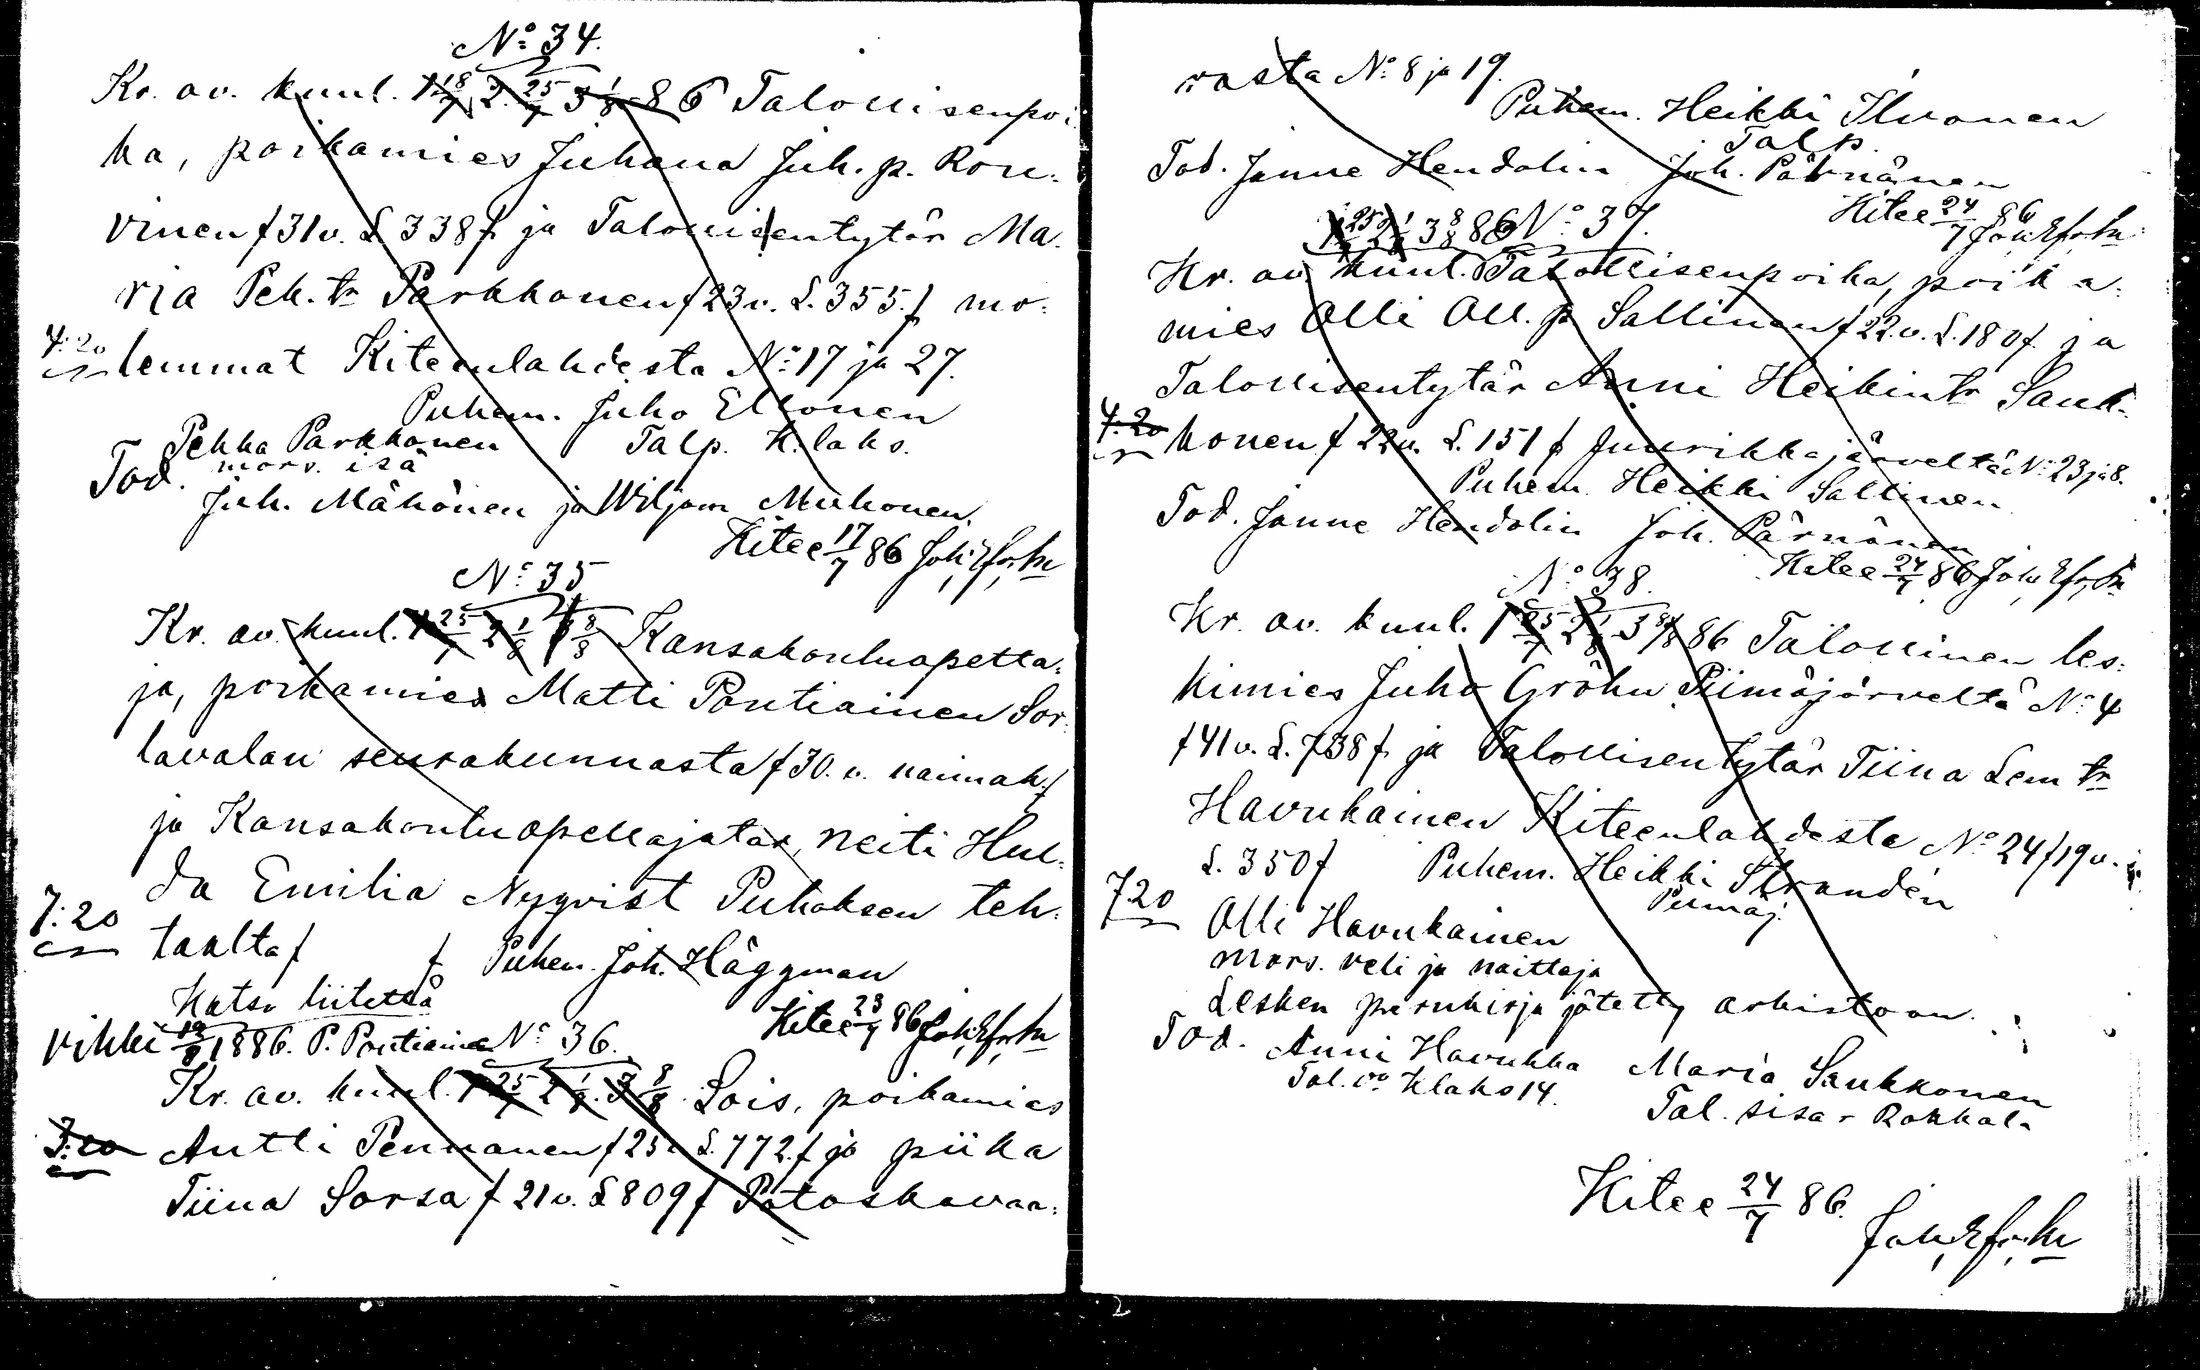 No 34.
Kr. av. kuul. 1 18/7 2. 25/7 3 1/8 86 Talollisenpoi
ka, poikamies Juhana Juh. p. Rou-
vinen f 31 v. L 338 f ja Talollisentytär Ma-
ria Pek. tr Parkkonen f 23 v. L. 355. f mo-
7:20 lemmat Kiteenlahdesta No 17 ja 27.
Puhem. Juho Ellonen
Talp. K.laks.
Pekka Parkkonen
mors. isä
Tod. Juh. Mähönen ja Wiljam Muhonen.
Kitee 17/7 86
No 35
Kr. av. kuul. 1 25/7 2 1/8 3 8/8 Kansakouluopetta-
ja, poikamies Matti Pontiainen Sor-
tavalan seurakunnasta f 30. v. naimat. f
ja Kansakouluopettajatar, neiti Hul-
da Emilia Nyqvist Puhoksen teh-
7:20 taalta f f Puhem. Joh. Häggman
Katso liitettä
Kitee 23/7 86
vihki 12/8 1886. P. Pontiainen
No 36.
Kr. av. kuul. 1 25/7 2 1/8. 3 8/8 Lois, poikamies
3:20 Antti Pennanen f 25 v L. 772. f ja piika
Tiina Sorsa f 21 v. L 809 f Potoskavaa-
rasta No 8 ja 19.
Puhem. Heikki Ihvonen
Talp.
Tod. Janne Hendolin Joh. Pärnänen
Kitee 24/7 86
1 25/7 2 1/8 3 8/8 86 No 37.
Kr. av. kuul. Talollisenpoika, poika-
mies Olli Oll. p Sallinen f 22. v. L. 180 f. ja
Talollisentytär Anni Heikintr Sauk-
7:20 konen f 22 v. L. 151 f Juurikkajärveltä No 23 ja 8.
Puhem. Heikki Sallinen
Tod. Janne Hendolin Joh. Pärnänen
Kitee 24/7 86
No 38.
Kr. av. kuul. 1 25/7 2 1/8 3 8/8 86 Talollinen les-
kimies Juho Gröhn Piimäjärveltä No 4
f 41 v. L. 738 f. ja Talollisentytär Tiina Lem tr
Havukainen Kiteenlahdesta No 24 f 19 v.
L. 350 f Puhem. Heikki Strandén
Piimäj.
7.20 Olli Havukainen
mors. veli ja naittaja
Lesken perukirja jätetty arkistoon.
Tod. Anni Havukka Maria Saukkonen
Tal. vo Klaks 14. Tal. sisar Rokkala
Kitee 24/7 86.